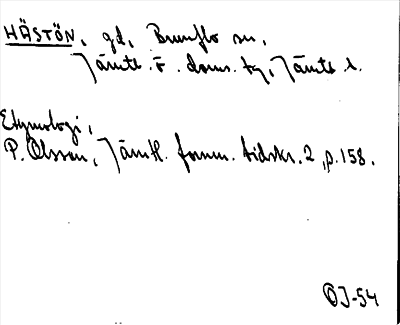 HÄSTÖN, gd, Brunflo sn,
Jämtl. ö. doms. tg, Jämtl l.
Etymologi,
P. Olsson, Jämtl. fornm. tidskr. 2, p. 158.
OJ-54